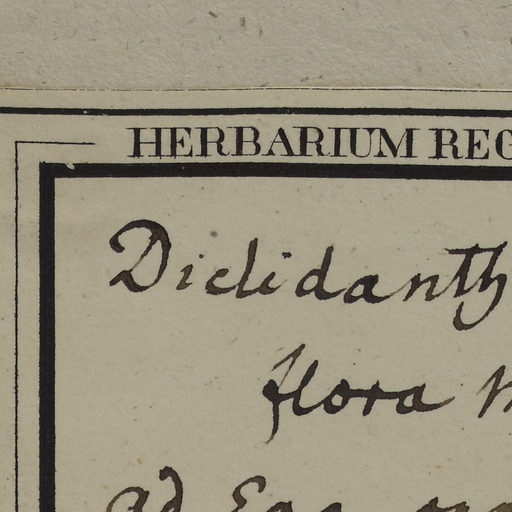 HERBARIUM REG
Diclidanth
flora
ad